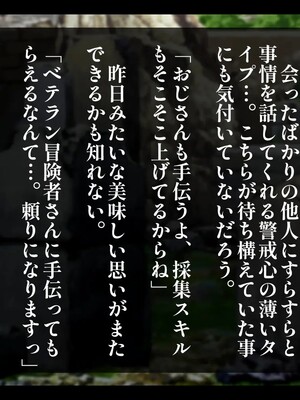 会ったばかりの他人にすらすらと
事情を話してくれる警戒心の薄いタ
イプ…。こちらが待ち構えていた事
にも気付いていないだろう。
「おじさんも手伝うよ、採集スキル
もそこそこ上げてるからね」
昨日みたいな美味しい思いがまた
できるかも知れない。
「ベテラン冒険者さんに手伝っても
らえるなんて…。頼りになりますっ」